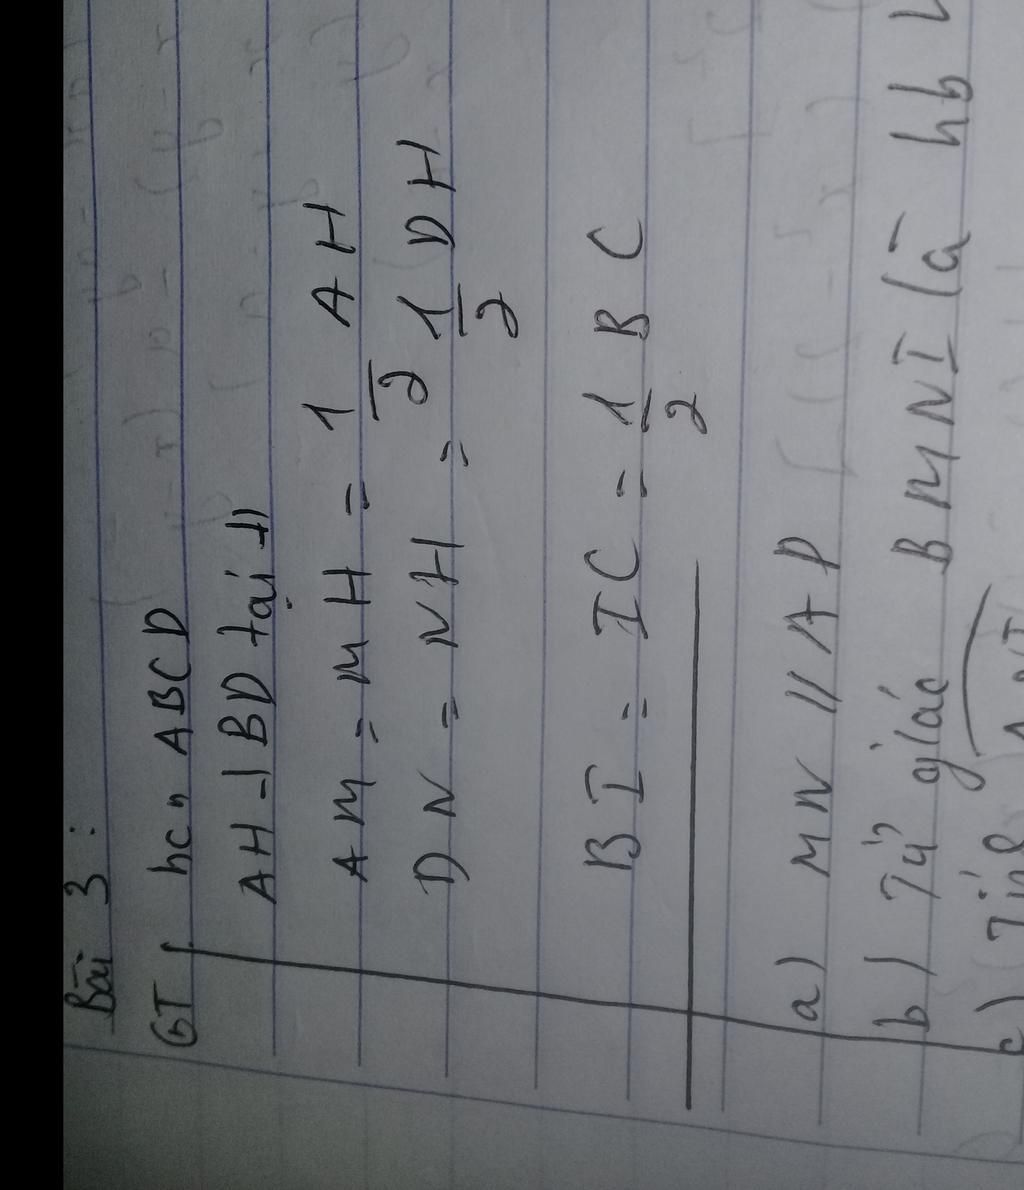 Bài 3 :
GT hcn ABCD
AH ⊥ BD tại H
AM = MH = 1/2 AH
DN = NH = 1/2 DH
BI = IC = 1/2 BC
a) MN // AD
b) Tứ giác BMNI là hb
c) Tính